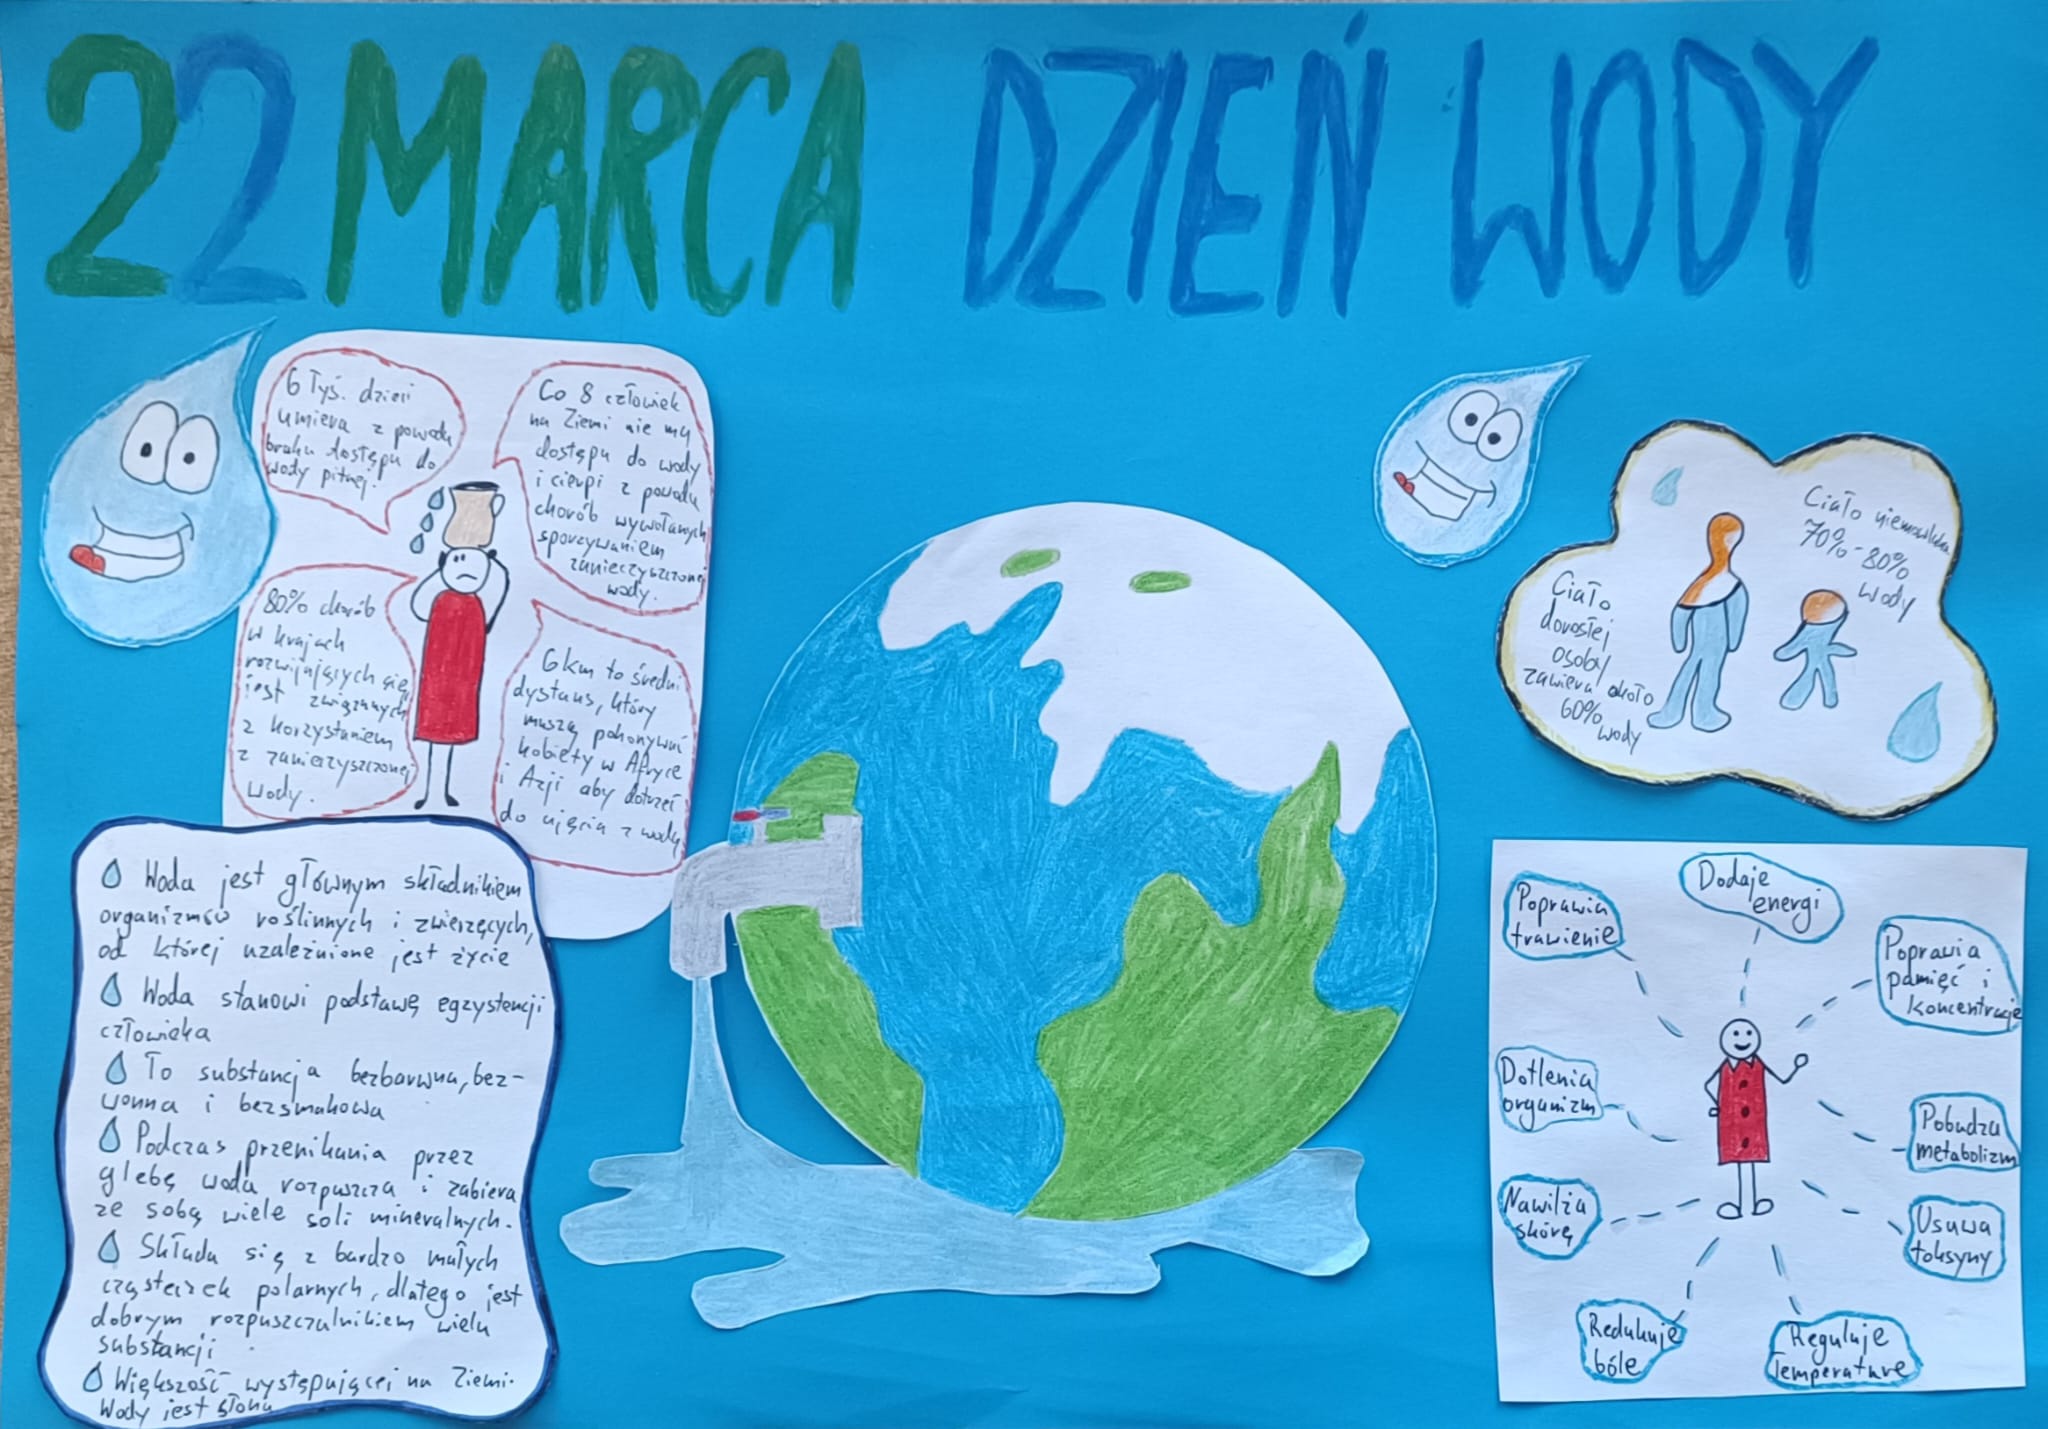 22 MARCA DZIEŃ WODY
6 tyś. dzieci
umiera z powodu
braku dostępu do
wody pitnej!
Co 8 człowiek
na Ziemi nie ma
dostępu do wody
i cierpi z powodu
chorób wywołanych
spożywaniem
zanieczyszczonej
wody.
80% chorób
w krajach
rozwijających się
jest związanych
z korzystaniem
z zanieczyszczonej
wody.
6 km to średni
dystans, który
muszą pokonywać
kobiety w Afryce
i Azji aby dotrzeć
do ujęcia z wodą
Woda jest głównym składnikiem
organizmów roślinnych i zwierzęcych,
od której uzależnione jest życie
Woda stanowi podstawę egzystencji
człowieka
To substancja bezbarwna, bez-
wonna i bezsmakowa
Podczas przenikania przez
glebę woda rozpuszcza i zabiera
ze sobą wiele soli mineralnych.
Składa się z bardzo małych
cząsteczek polarnych, dlatego jest
dobrym rozpuszczalnikiem wielu
substancji
Większość występującej na Ziemi.
Wody jest słona
Ciało niemowlaka
70%-80%
wody
Ciało
dorosłej
osoby
zawiera około
60%
wody
Dodaje
energi
Poprawia
trawienie
Poprawia
pamięć i
koncentracje
Dotlenia
organizm
Pobudza
metabolizm
Nawilża
skórę
Usuwa
toksyny
Redukuje
bóle
Reguluje
Temperature